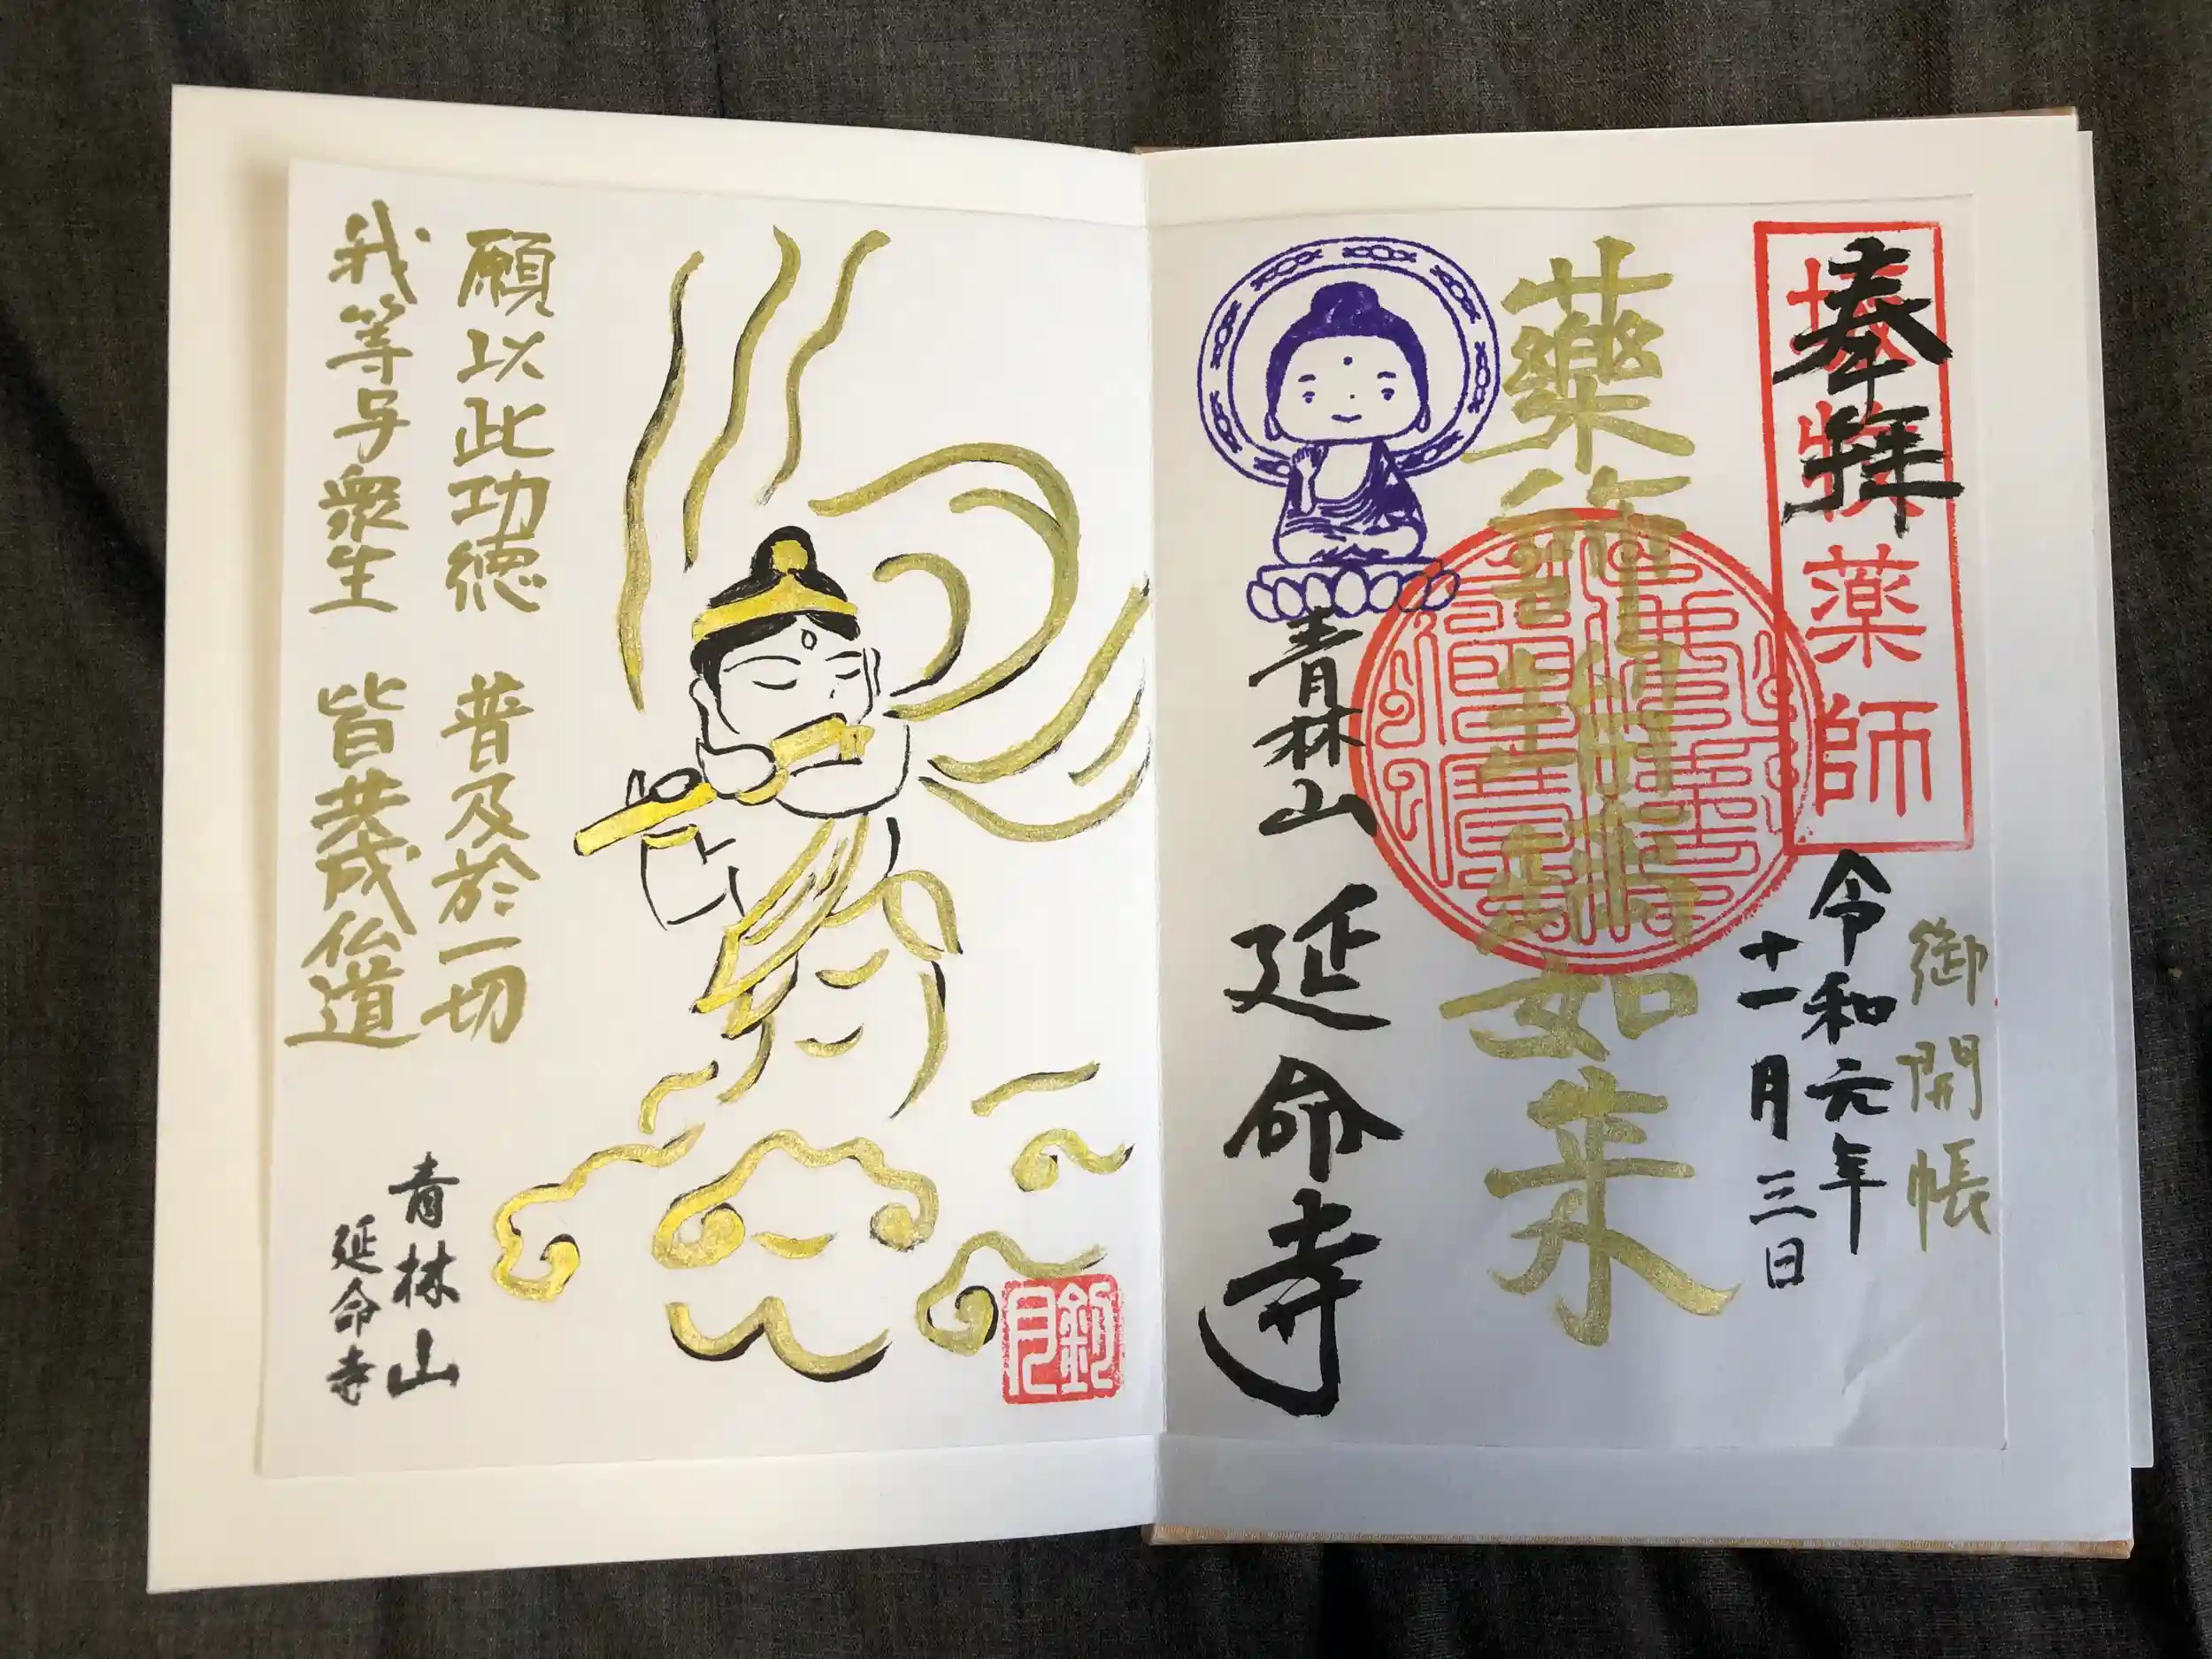 御開帳
奉拝
薬師
令和元年
十一月三日
藥師瑠璃如来
青林山
延命寺
願以此功徳 普及於一切
我等与衆生 皆共成仏道
青林山
延命寺